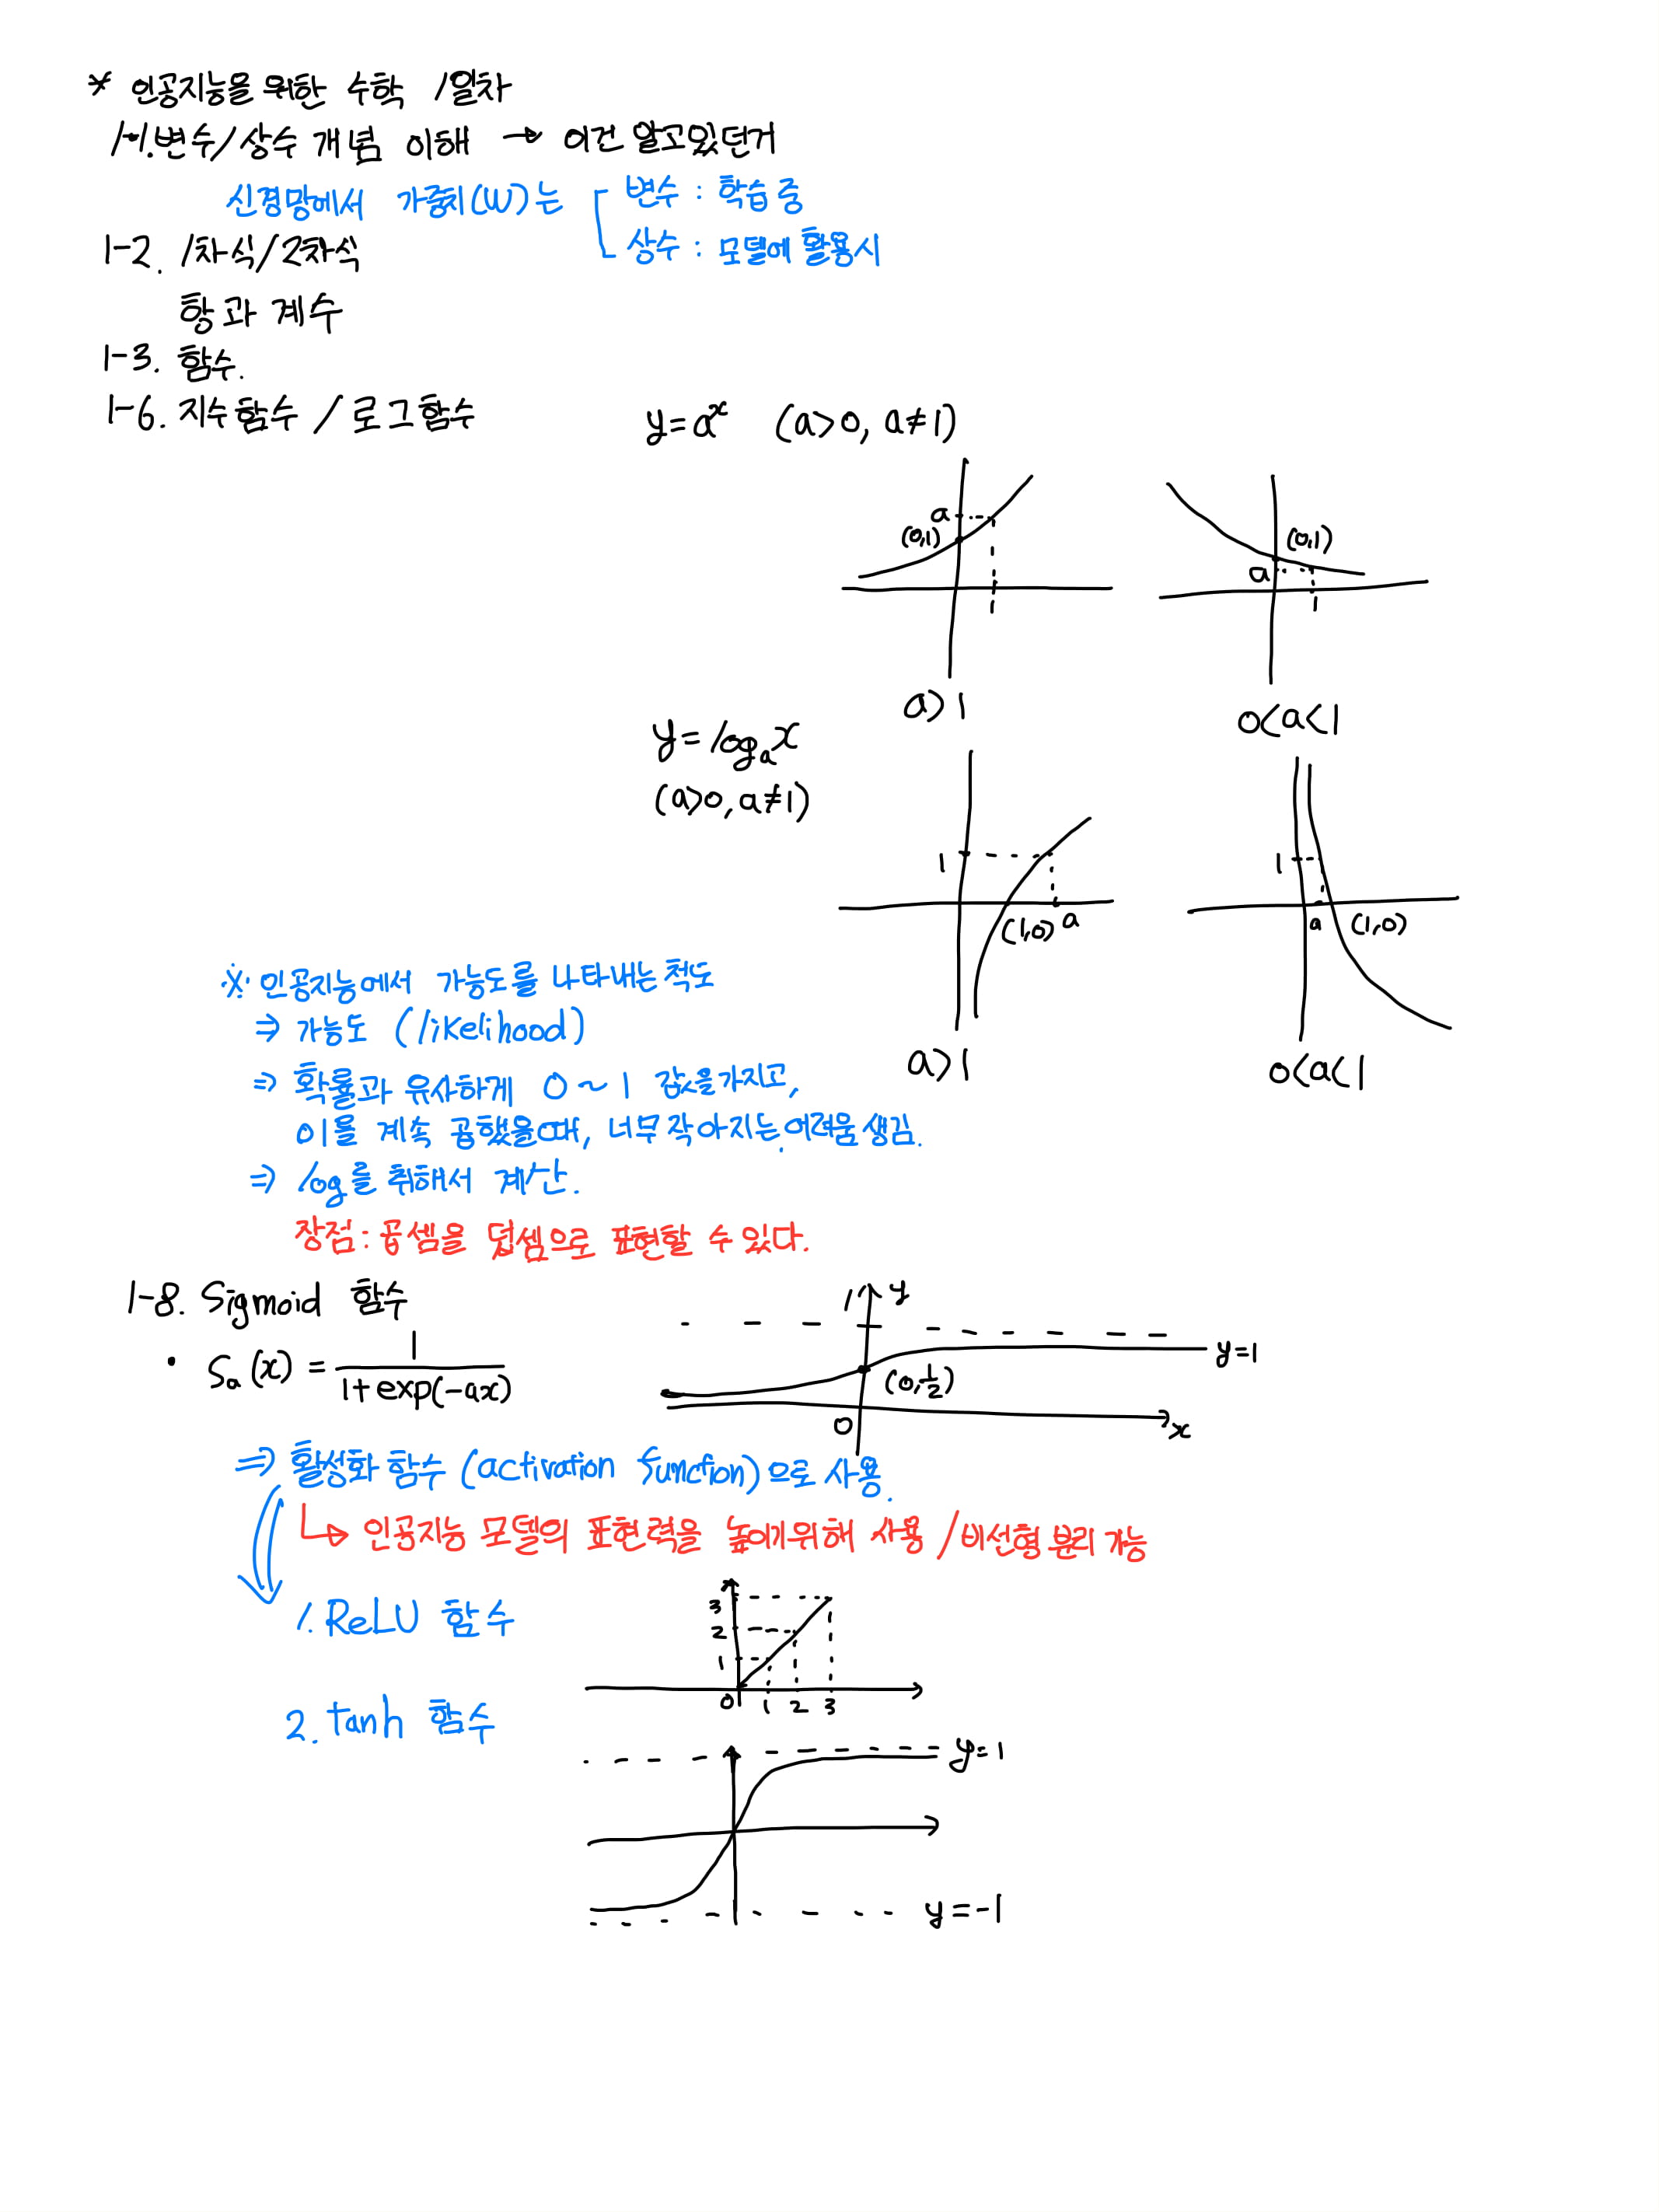 * 인공지능을 위한 수학 1일차
1-1. 변수/상수 개념 이해 → 이건 알고있던거
신경망에서 가중치(W)는
변수 : 학습 중
상수 : 모델에 활용시
1-2. 1차식/2차식
항과 계수
1-3. 함수.
1-6. 지수함수 / 로그함수
y=aˣ (a>0, a≠1)
a
(0,1)
1
a>1
(0,1)
a
1
0<a<1
y=logₐx
(a>0, a≠1)
1
(1,0) a
a>1
1
a (1,0)
0<a<1
※ 인공지능에서 가능도를 나타내는 척도
⇒ 가능도 (likelihood)
⇒ 확률과 유사하게 0 ~ 1 값을가지고,
이를 계속 곱했을때, 너무 작아지는 어려움 생김.
⇒ log를 취해서 계산.
장점 : 곱셈을 덧셈으로 표현할 수 있다.
1-8. Sigmoid 함수
· Sₐ(x) = 1/(1+exp(-ax))
1 y
y=1
(0,1/2)
0
x
⇒ 활성화 함수 (activation function)으로 사용.
↳ 인공지능 모델의 표현력을 높이기위해 사용 / 비선형 분리 가능
1. ReLU 함수
3
2
1
0 1 2 3
2. tanh 함수
y=1
y=-1